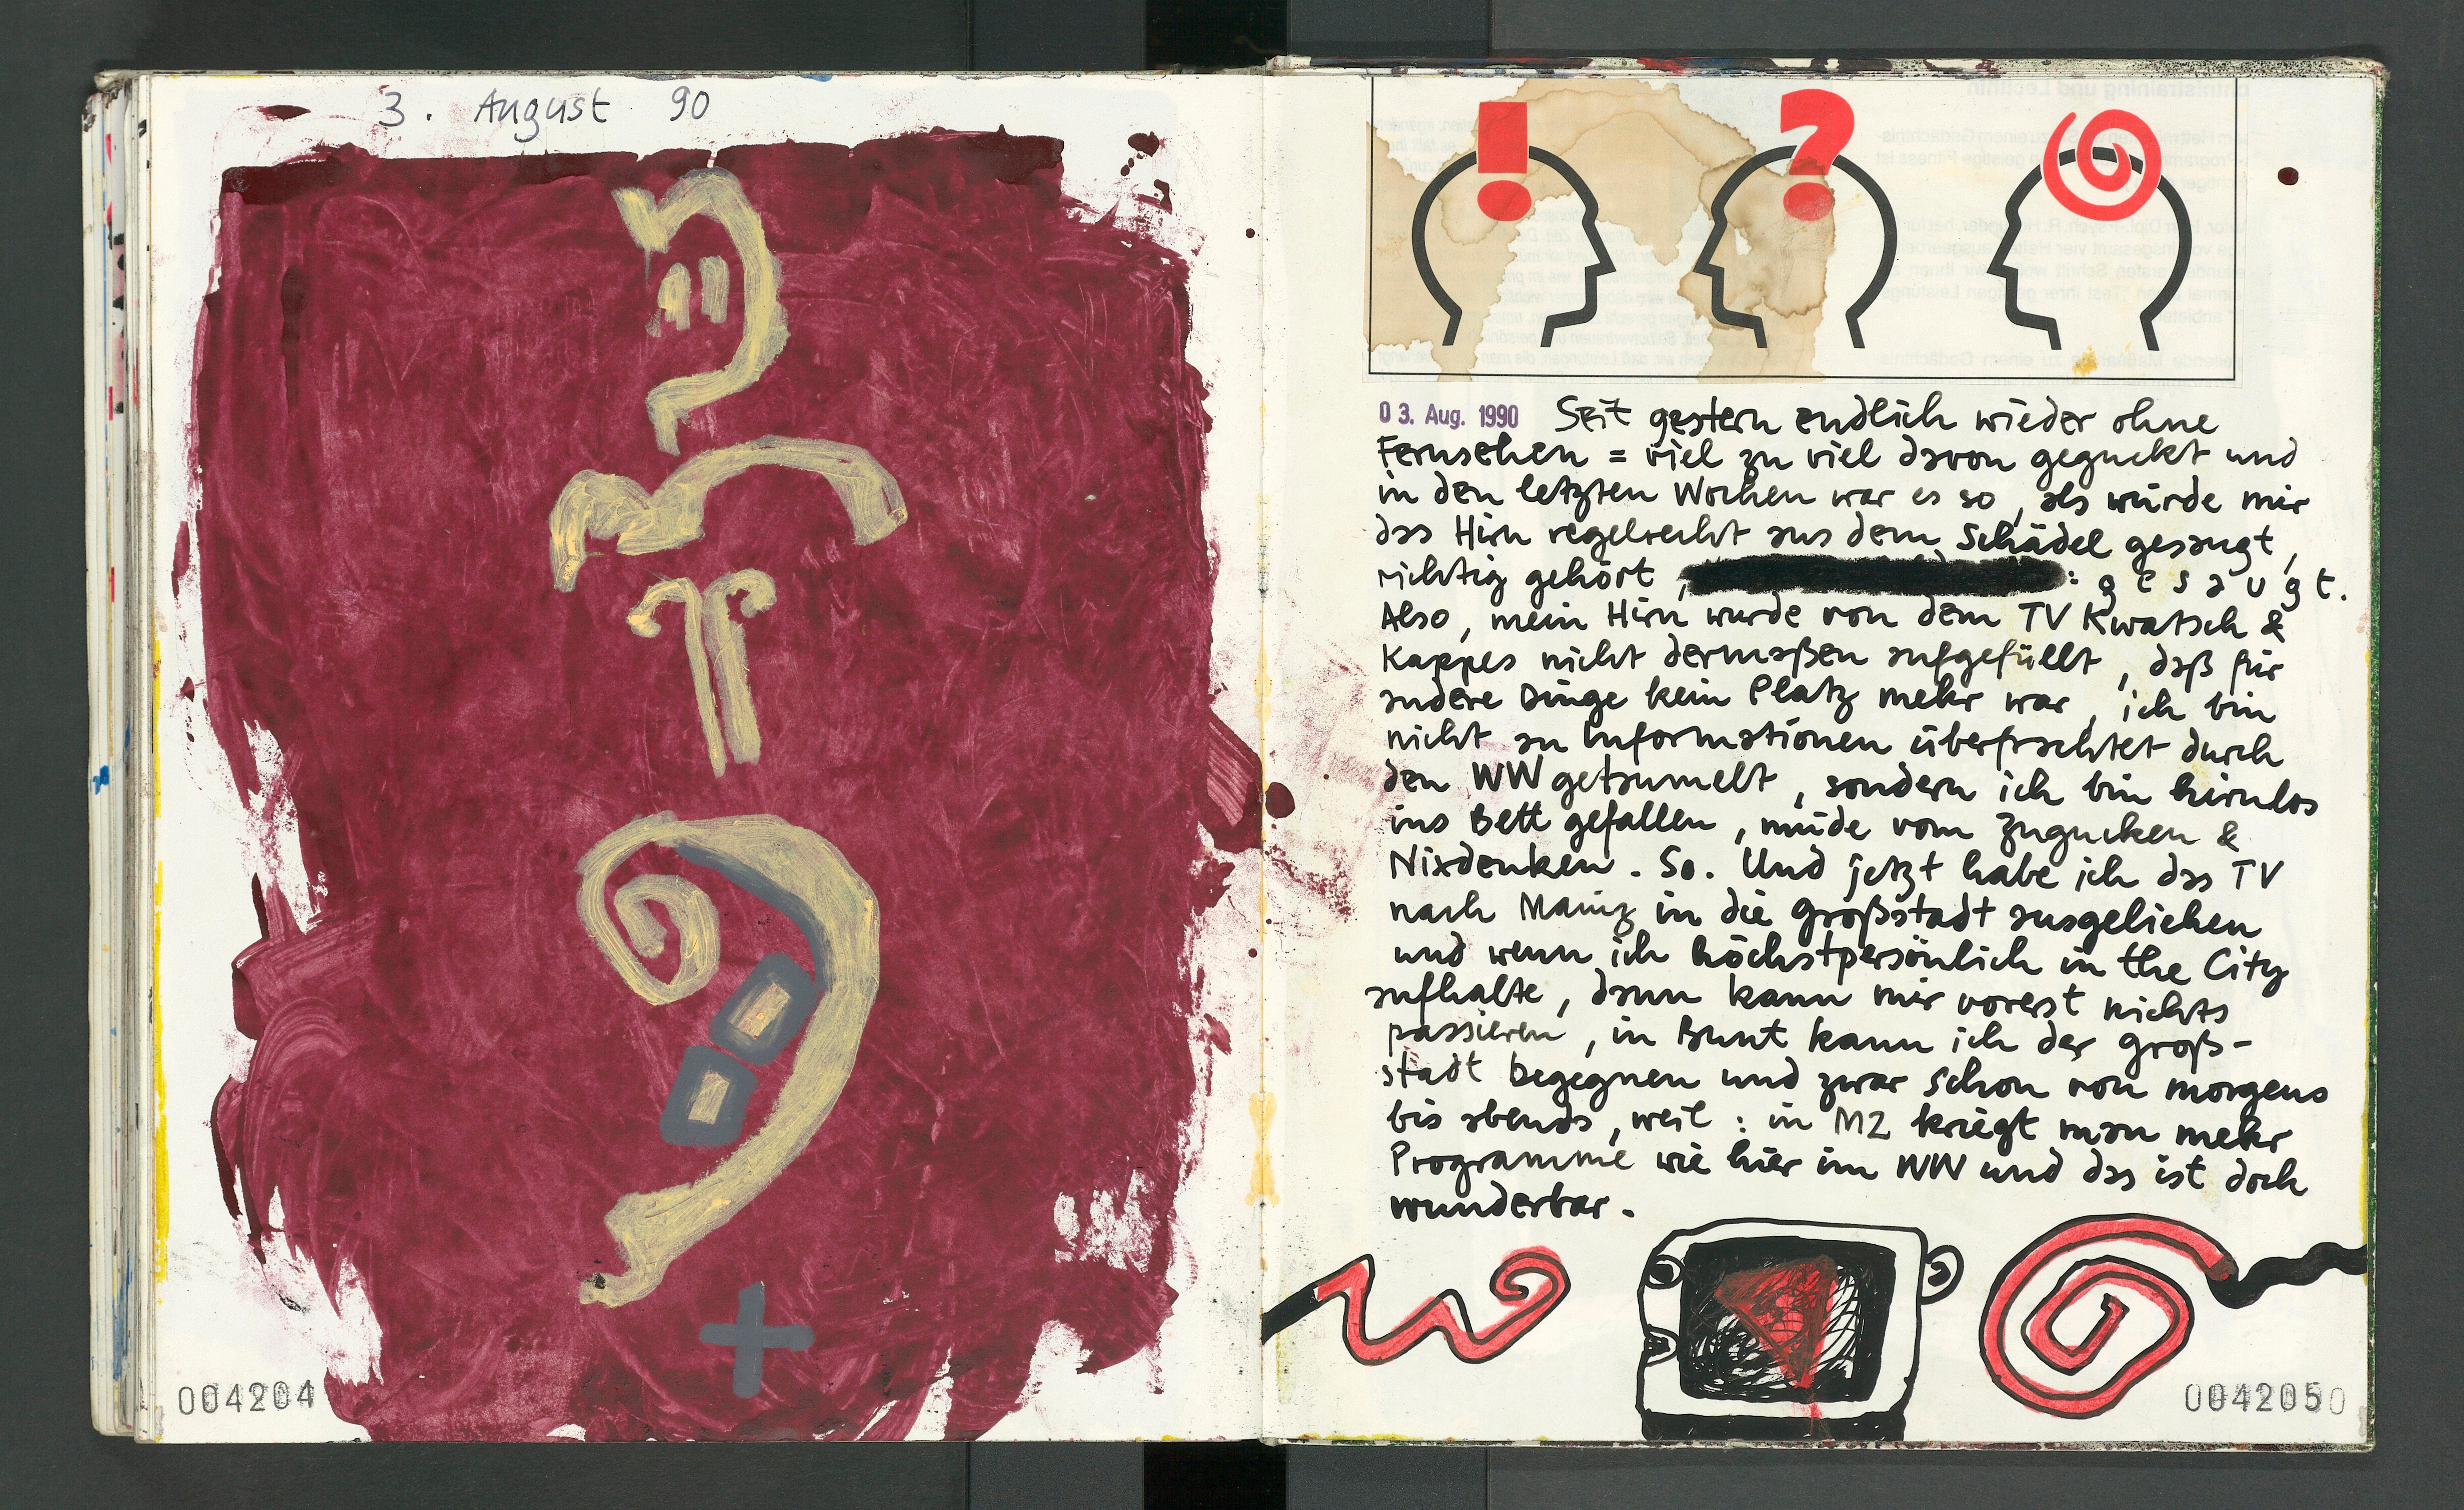 3. August 90
004204
! ?
03. Aug. 1990 Seit gestern endlich wieder ohne
Fernsehen = viel zu viel davon geguckt und
in den letzten Wochen war es so, als würde mir
das Hirn regelrecht aus dem Schädel gesaugt,
richtig gehört, : g e s a u g t.
Also, mein Hirn wurde von dem TV Kwatsch &
Kappes nicht dermaßen aufgefüllt, daß für
andere Dinge kein Platz mehr war, ich bin
nicht an Informationen überfrachtet durch
den WW getaumelt, sondern ich bin hirnlos
ins Bett gefallen, müde vom Zugucken &
Nixdenken. So. Und jetzt habe ich das TV
nach Mainz in die Großstadt ausgeliehen
und wenn ich höchstpersönlich in the City
aufhalte, dann kann mir vorerst nichts
passieren, in Bunt kann ich der Groß-
stadt begegnen und zwar schon von morgens
bis abends, weil : in MZ kriegt man mehr
Programme wie hier im WW und das ist doch
wunderbar.
0042050